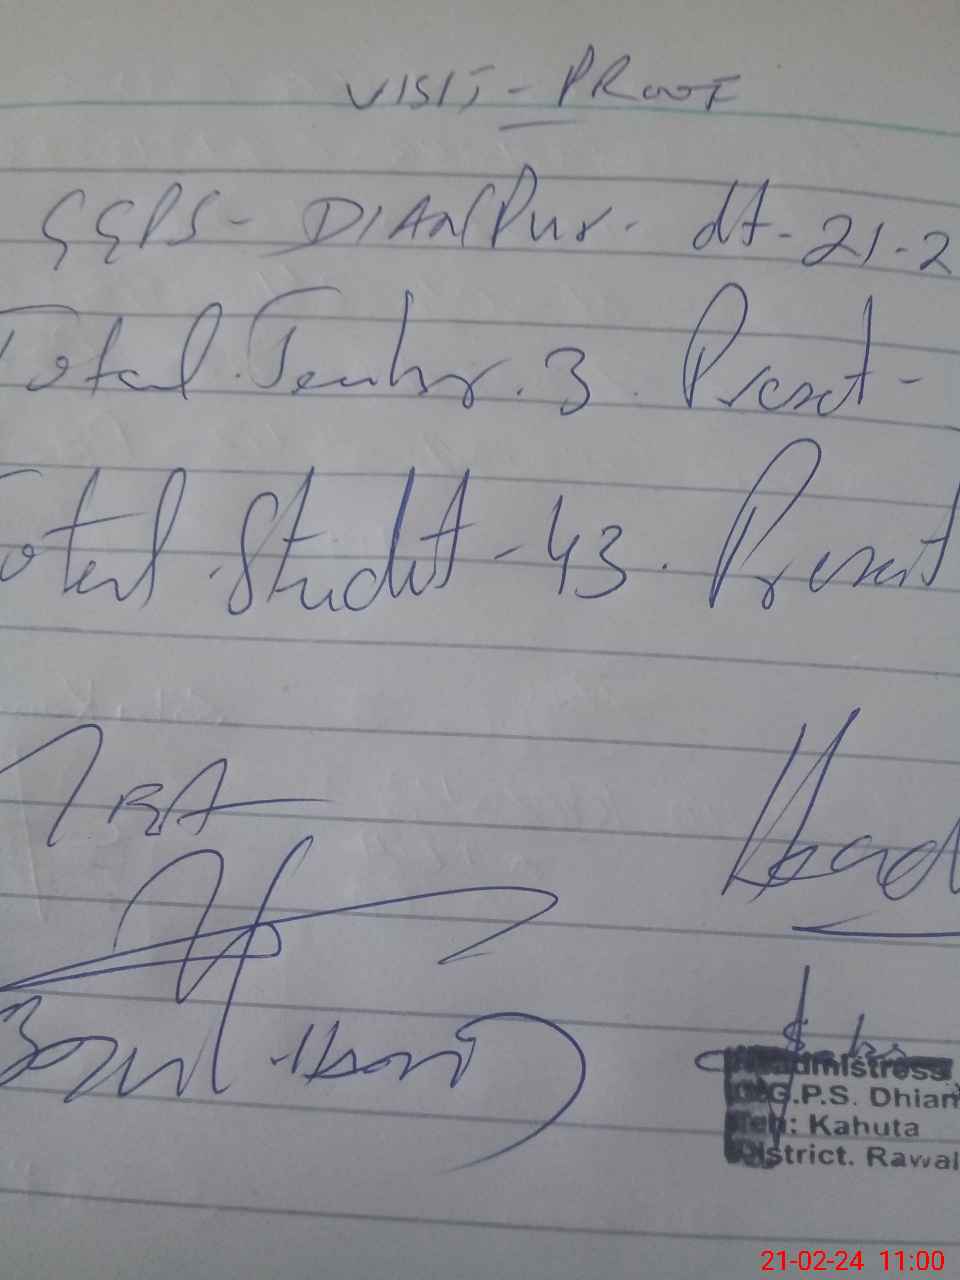 VISIT - PROOF
GGPS - DIANPur - dt - 21 - 2
Total Teacher . 3 . Present -
Total Student - 43 . Present
Head
Headmistress
G.P.S. Dhian
Teh: Kahuta
District. Rawal
21-02-24 11:00